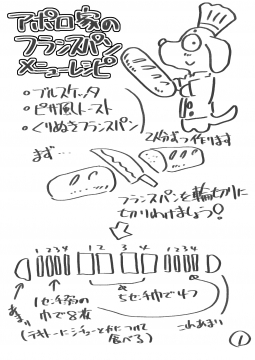 アポロ家の
フランスパン
メニューレシピ
・ブルスケッタ
・ピザ風トースト
・くりぬきフランスパン
2人分ずつ作ります
まず…
フランスパンを輪切りに
切りわけましょう!
1 2 3 4 1 2 3 4 1 2 3 4
あまり
1センチ弱の
巾で8枚
5センチ巾で4つ
これあまり
(テキトーにシチューとかにつけて
食べる)
1